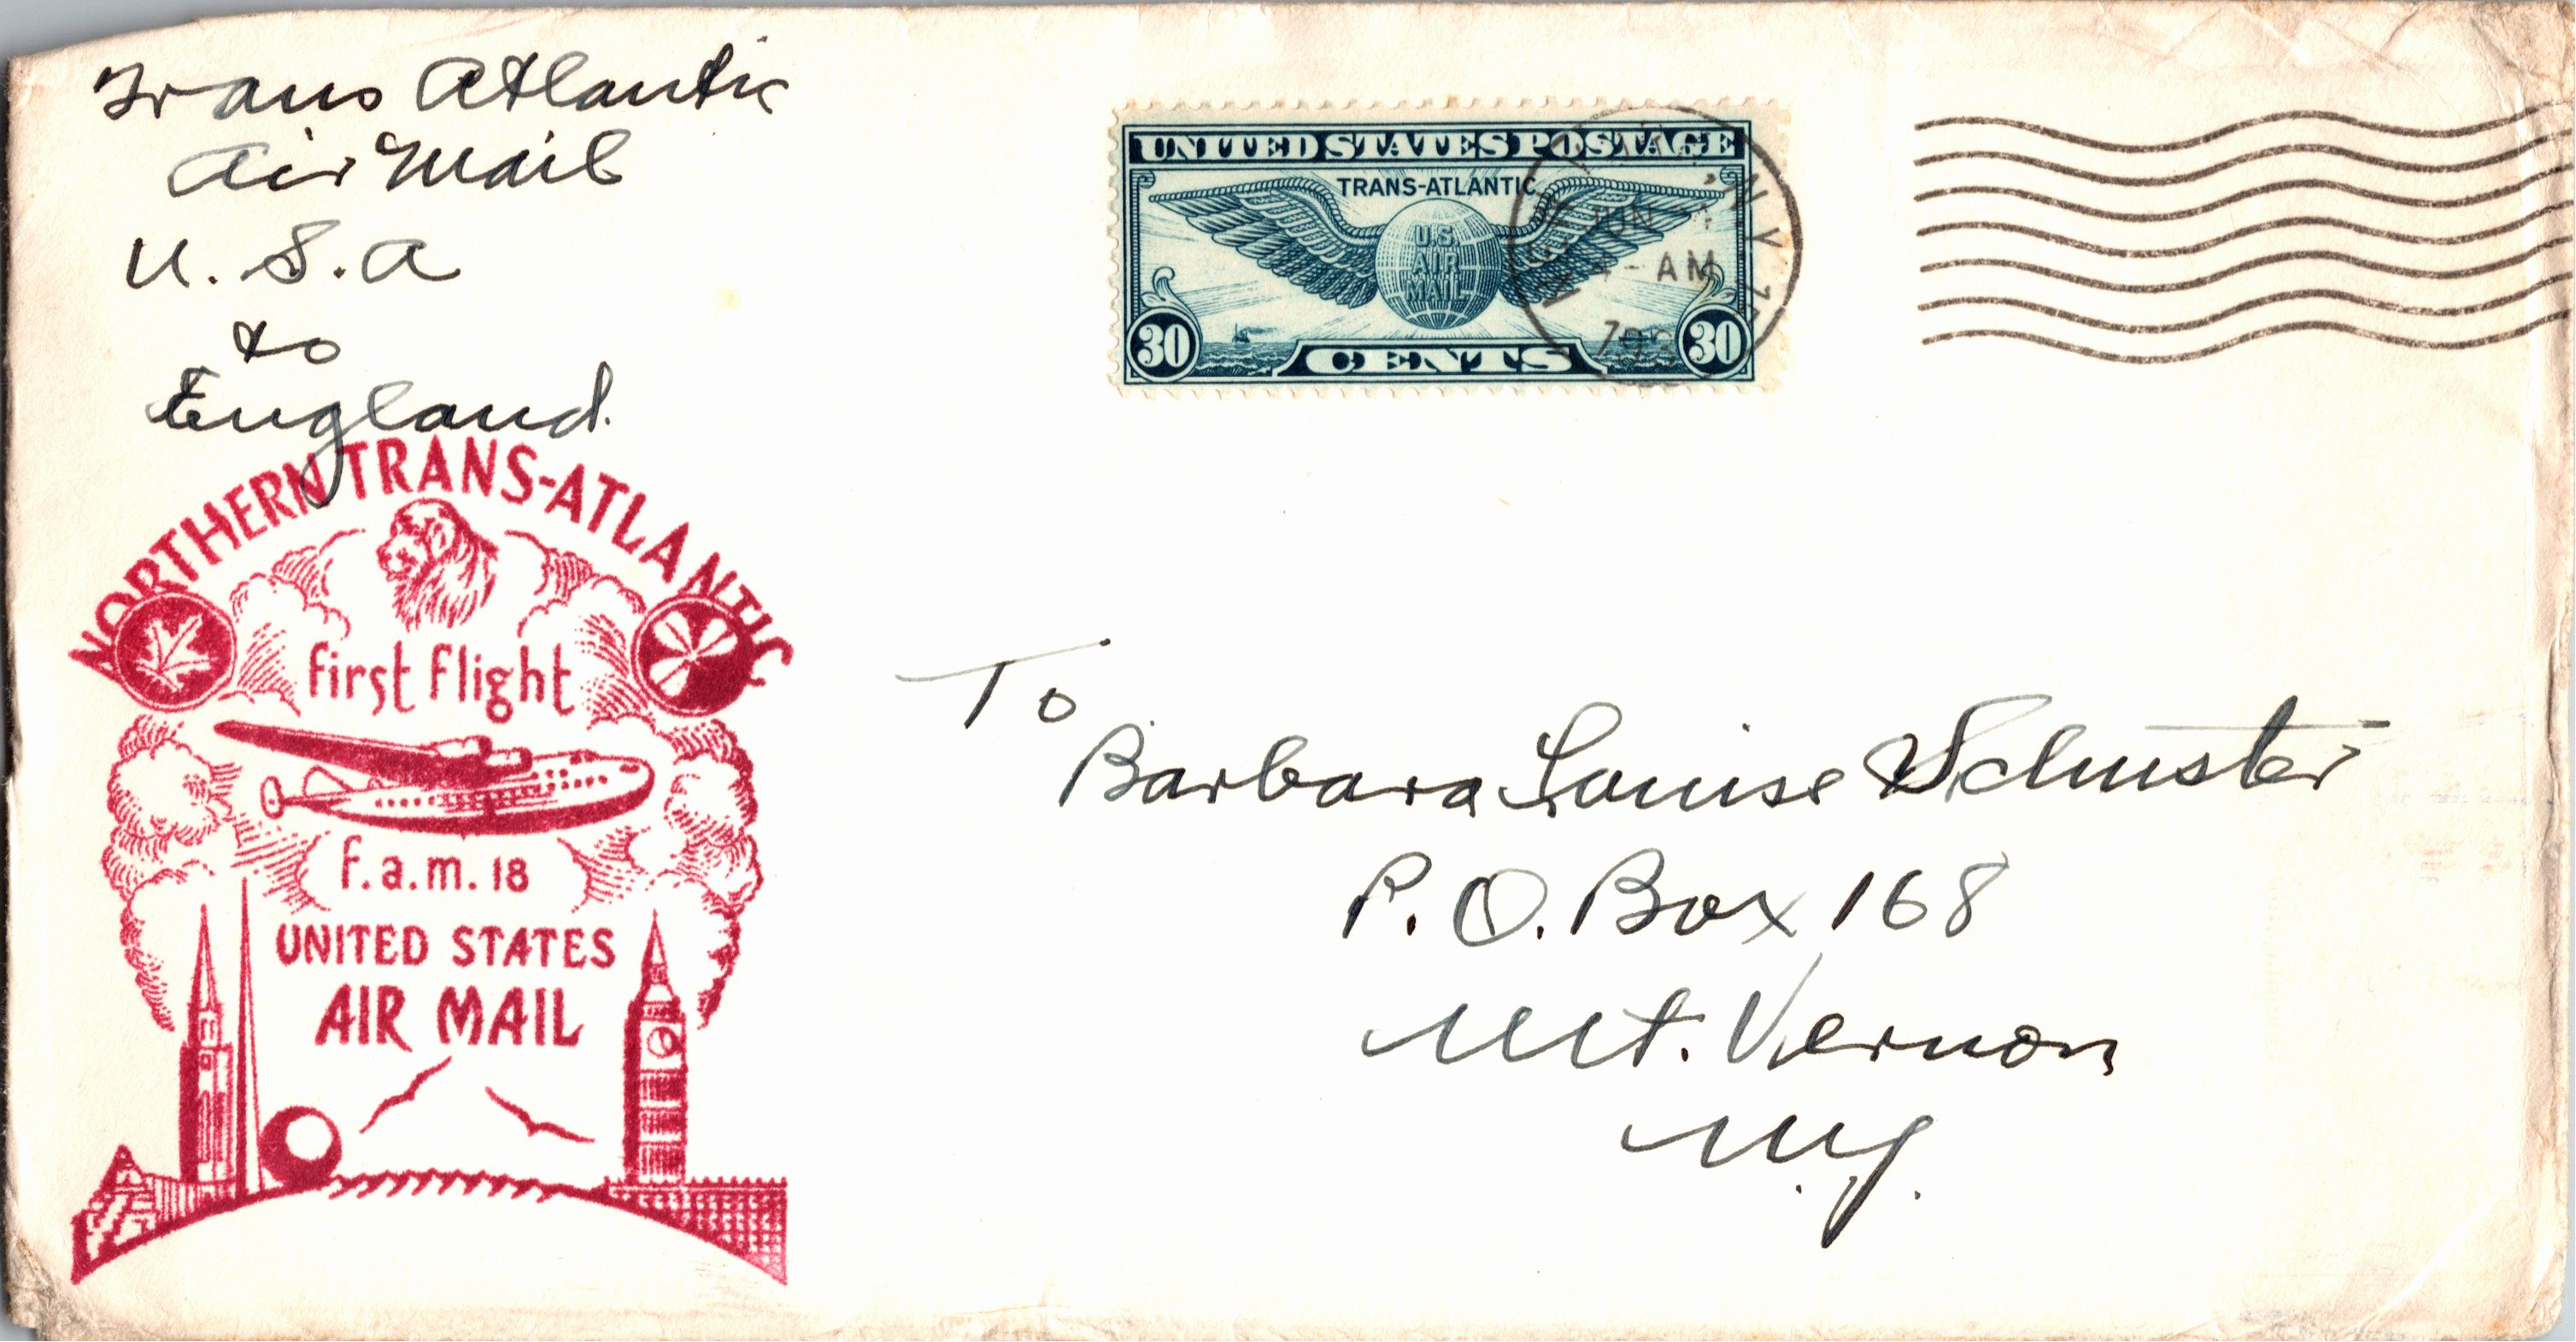 Trans Atlantic
Air Mail
U.S.A
to
England.
UNITED STATES POSTAGE
TRANS-ATLANTIC
U.S.
AIR
MAIL
30 CENTS 30
N.Y.
JUN
AM
NORTHERN TRANS-ATLANTIC
first flight
f.a.m. 18
UNITED STATES
AIR MAIL
To
Barbara Louise Schuster
P.O. Box 168
Mt. Vernon
N.Y.